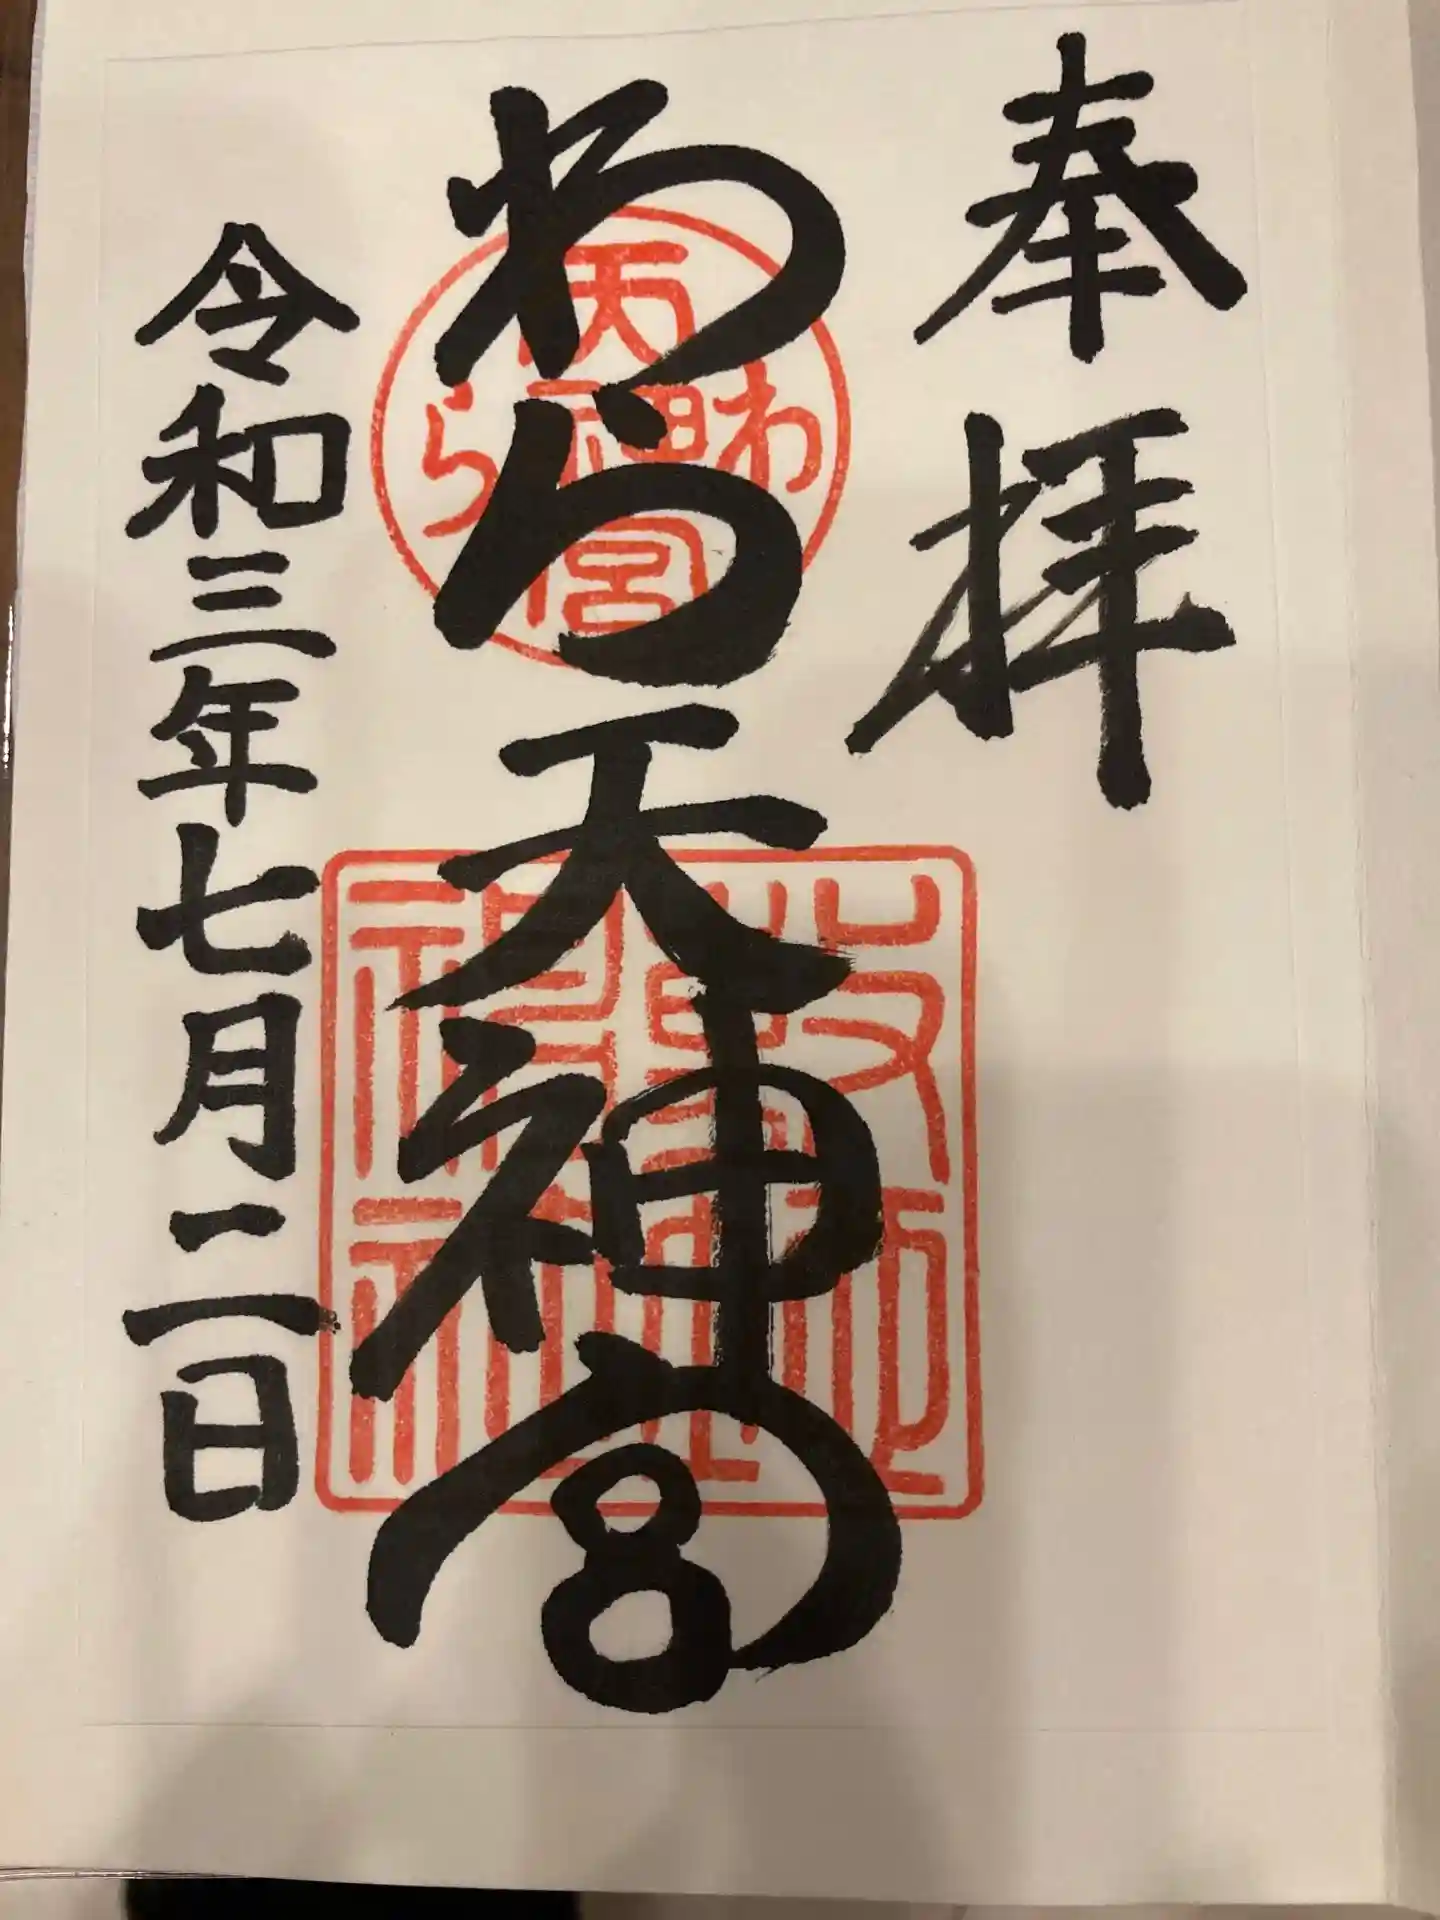 奉拝
わら天神宮
令和三年七月二日
天神宮
わら
敷地神社